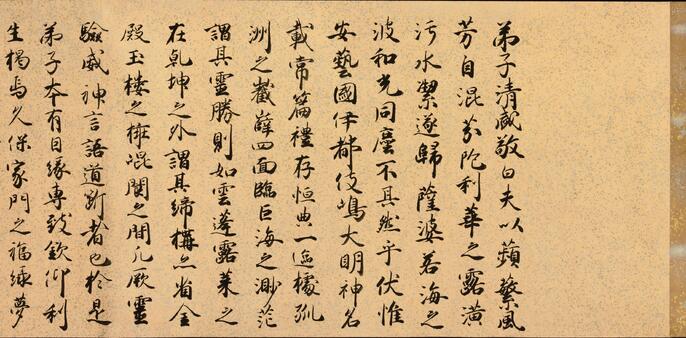 弟子清盛敬白夫以蘋蘩風
芳自混芬陀利華之露潢
污水潔遂歸薩婆若海之
波和光同塵不其然乎伏惟
安藝國伊都伎嶋大明神名
載常篇禮存恒典一區據孤
洲之巀嶭四面臨巨海之渺茫
謂其靈勝則如雲蓬露萊之
在乾坤之外謂其締構亦省金
殿玉樓之擁崐閬之間凡厥靈
驗威神言語道斷者也於是
弟子本有因緣專致欽仰利
生揭焉久保家門之福緣夢